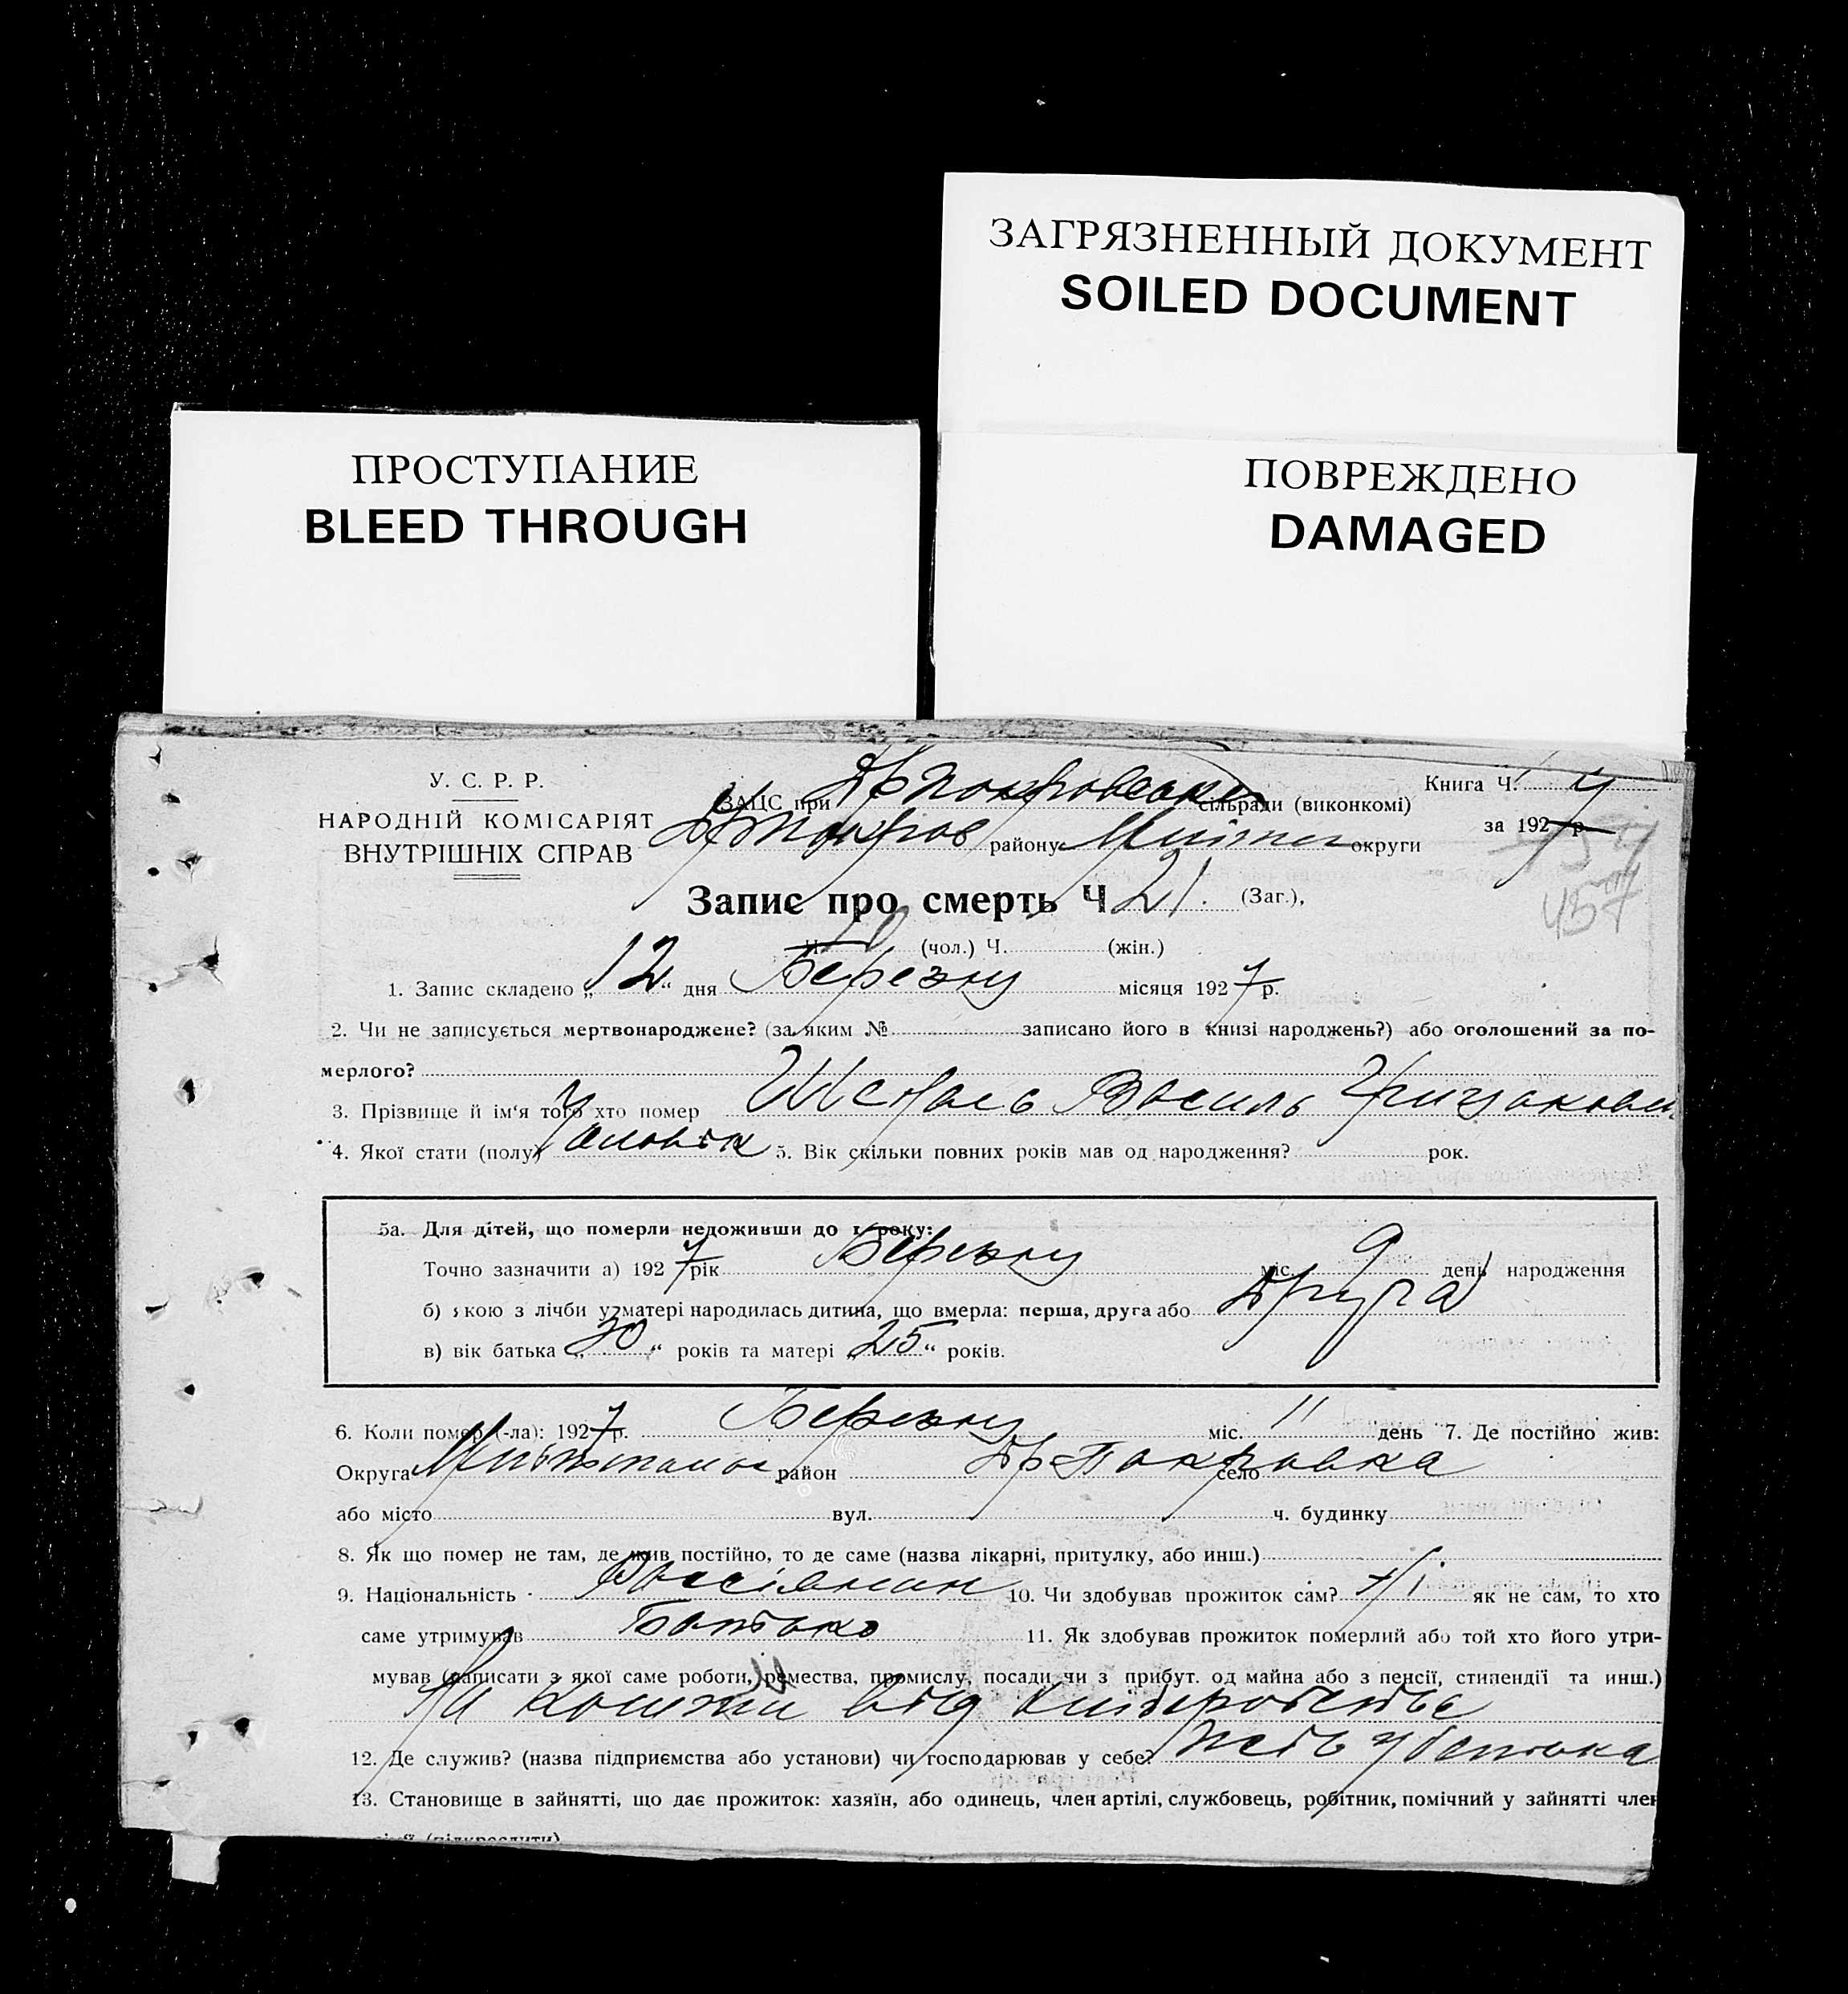 ЗАГРЯЗНЕННЫЙ ДОКУМЕНТ
SOILED DOCUMENT
ПРОСТУПАНИЕ
BLEED THROUGH
ПОВРЕЖДЕНО
DAMAGED
У. С. Р. Р.
НАРОДНІЙ КОМІСАРІЯТ
ВНУТРІШНІХ СПРАВ
ЗАЦС при сільради (виконкомі)
району округи
Книга Ч.
за 1927 р.
457
Запис про смерть Ч 21. (Заг.),
Ч. (чол.) Ч. (жін.)
1. Запис складено „12“ дня Березня місяця 1927 р.
2. Чи не записується мертвонароджене? (за яким № записано його в книзі народжень?) або оголошений за по-
мерлого?
3. Прізвище й ім'я того хто помер Василь
4. Якої стати (полу) Чоловік 5. Вік скільки повних років мав од народження? рок.
5а. Для дітей, що померли недоживши до 1 року:
Точно зазначити а) 1927 рік Березня міс. 9 день народження
б) якою з лічби у матері народилась дитина, що вмерла: перша, друга або Друга
в) вік батька „30“ років та матері „25“ років.
6. Коли помер (-ла): 1927 р. Березня міс. 11 день 7. Де постійно жив:
Округа район село Покровка
або місто вул. ч. будинку
8. Як що помер не там, де жив постійно, то де саме (назва лікарні, притулку, або инш.)
9. Національність 10. Чи здобував прожиток сам? як не сам, то хто
саме утримував Батько 11. Як здобував прожиток померлий або той хто його утри-
мував (написати з якої саме роботи, ремества, промислу, посади чи з прибут. од майна або з пенсії, стипендії та инш.)
На кошти від хліборобства
12. Де служив? (назва підприємства або установи) чи господарював у себе? у батька
13. Становище в зайнятті, що дає прожиток: хазяїн, або одинець, член артілі, службовець, робітник, помічний у зайнятті член